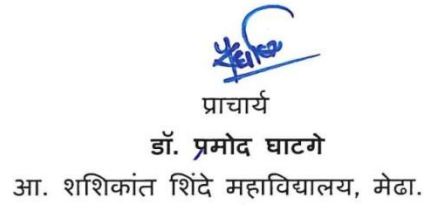 प्राचार्य
डॉ. प्रमोद घाटगे
आ. शशिकांत शिंदे महाविद्यालय, मेढा.